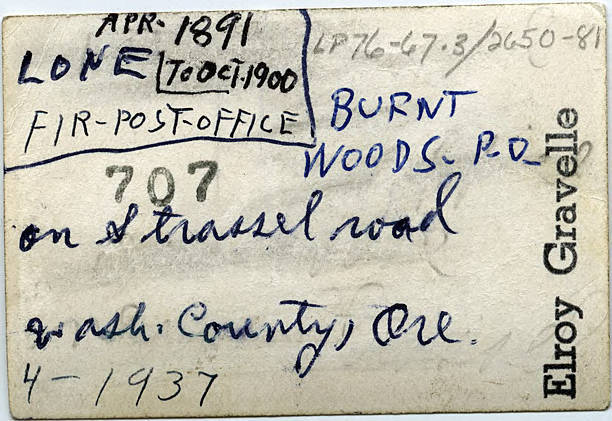 APR. 1891
LONE TO OCT. 1900
FIR-POST-OFFICE
LP76-67.3/2650-81
BURNT
WOODS. P.O.
707
on Strassel road
wash. County, Ore.
4-1937
Elroy Gravelle